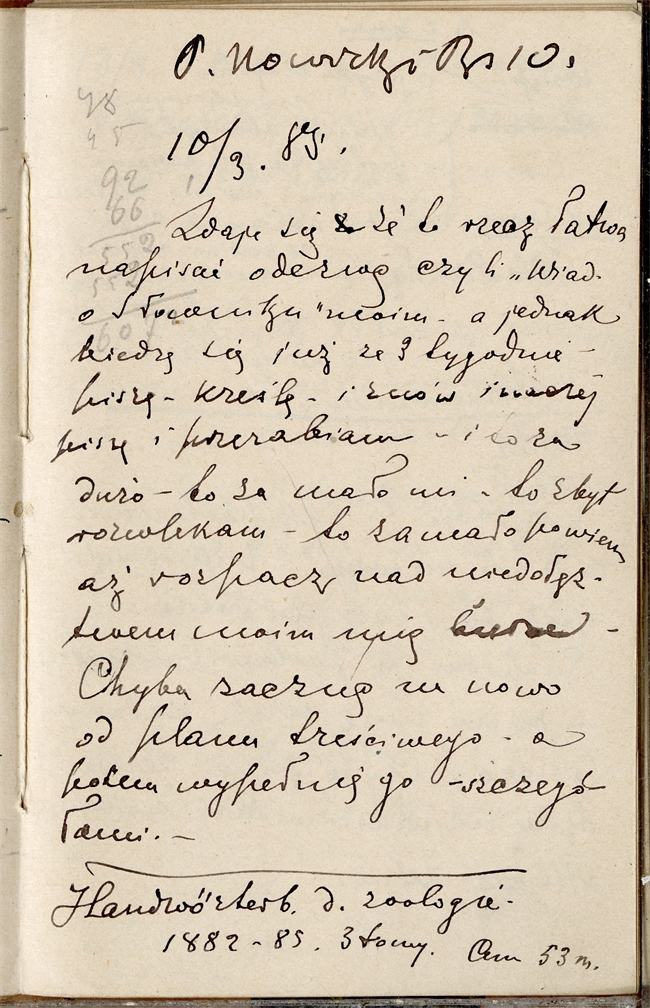 P. Nowicki Rs 10.
10/3. 85.
48
45
92
66
552
552
607
Zdaje się że to rzecz łatwa
napisać odezwę czyli „Wiad.
o Słowniku" moim - a jednak
biedzę się już ze 3 tygodnie -
piszę - kreślę - i znów inaczej
piszę i przerabiam - i to za
dużo - to za mało mi - to zbyt
rozwlekam - to za mało powiem
aż rozpacz nad niedołęz-
twem moim mię bierze -
Chyba zacznę na nowo
od planu treściwego - a
potem wypełnię go szczegó-
łami. -
Handwörterb. d. zoologie.
1882 - 85. 3 tomy. 53 m.